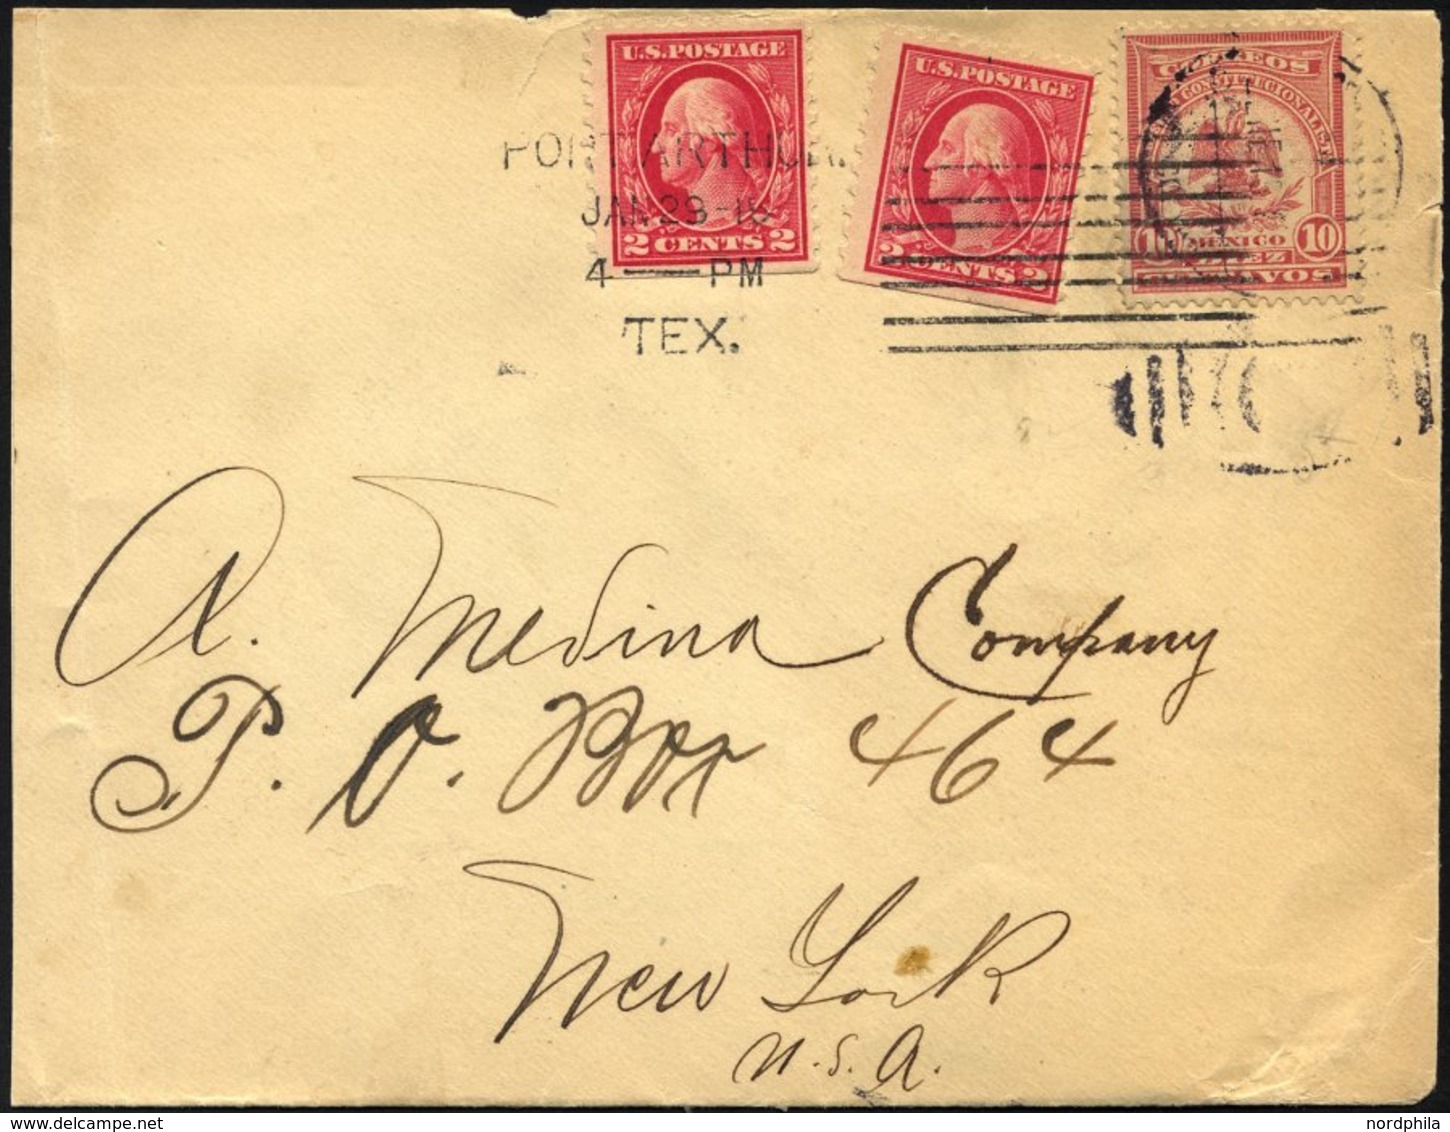 U.S. POSTAGE
2 CENTS 2
U.S. POSTAGE
2 CENTS 2
CORREOS
CONSTITUCIONALISTA
10 MEXICO 10
DIEZ
CENTAVOS
PORT ARTHUR.
JAN 29-15
4 PM
TEX.
A. Medina Company
P. O. Box 464
New York
U.S.A.
nordphila